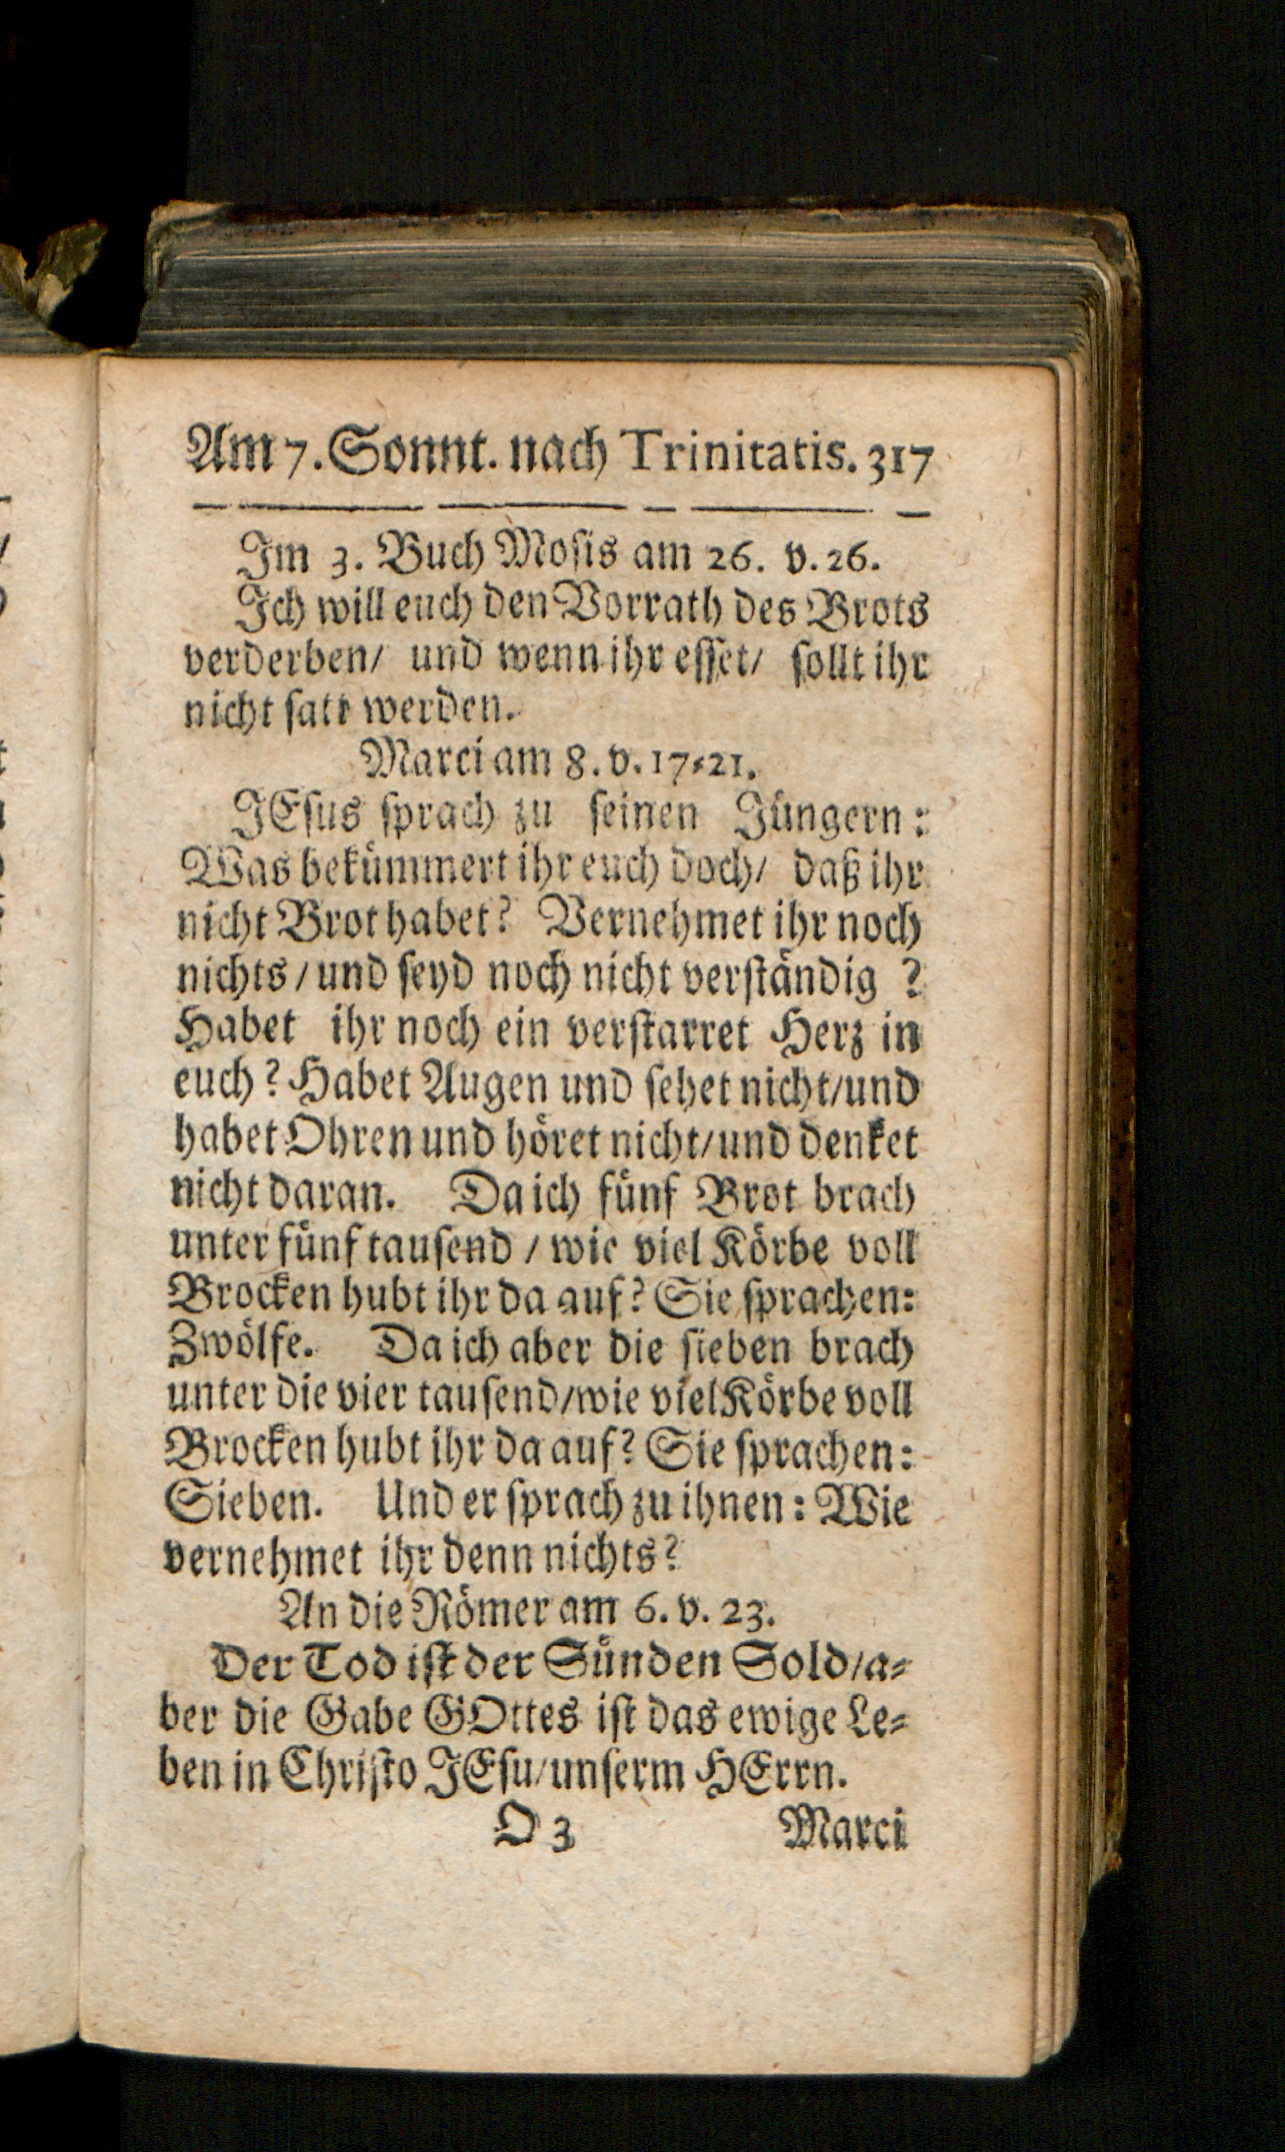 Am 7. Sonnt. nach Trinitatis. 317
Im 3. Buch Mosis am 26. v. 26.
Ich will euch den Vorrath des Brots
verderben/ und wenn ihr esset/ sollt ihr
nicht satt werden.
Marci am 8. v. 17-21.
JEsus sprach zu seinen Jüngern:
Was bekümmert ihr euch doch/ daß ihr
nicht Brot habet? Vernehmet ihr noch
nichts/ und seyd noch nicht verständig ?
Habet ihr noch ein verstarret Herz in
euch? Habet Augen und sehet nicht/ und
habet Ohren und höret nicht/ und denket
nicht daran. Da ich fünf Brot brach
unter fünf tausend / wie viel Körbe voll
Brocken hubt ihr da auf? Sie sprachen:
Zwölfe. Da ich aber die sieben brach
unter die vier tausend/ wie viel Körbe voll
Brocken hubt ihr da auf? Sie sprachen:
Sieben. Und er sprach zu ihnen: Wie
vernehmet ihr denn nichts?
An die Römer am 6. v. 23.
Der Tod ist der Sünden Sold/ a-
ber die Gabe GOttes ist das ewige Le-
ben in Christo JEsu/ unserm HErrn.
O 3 Marci